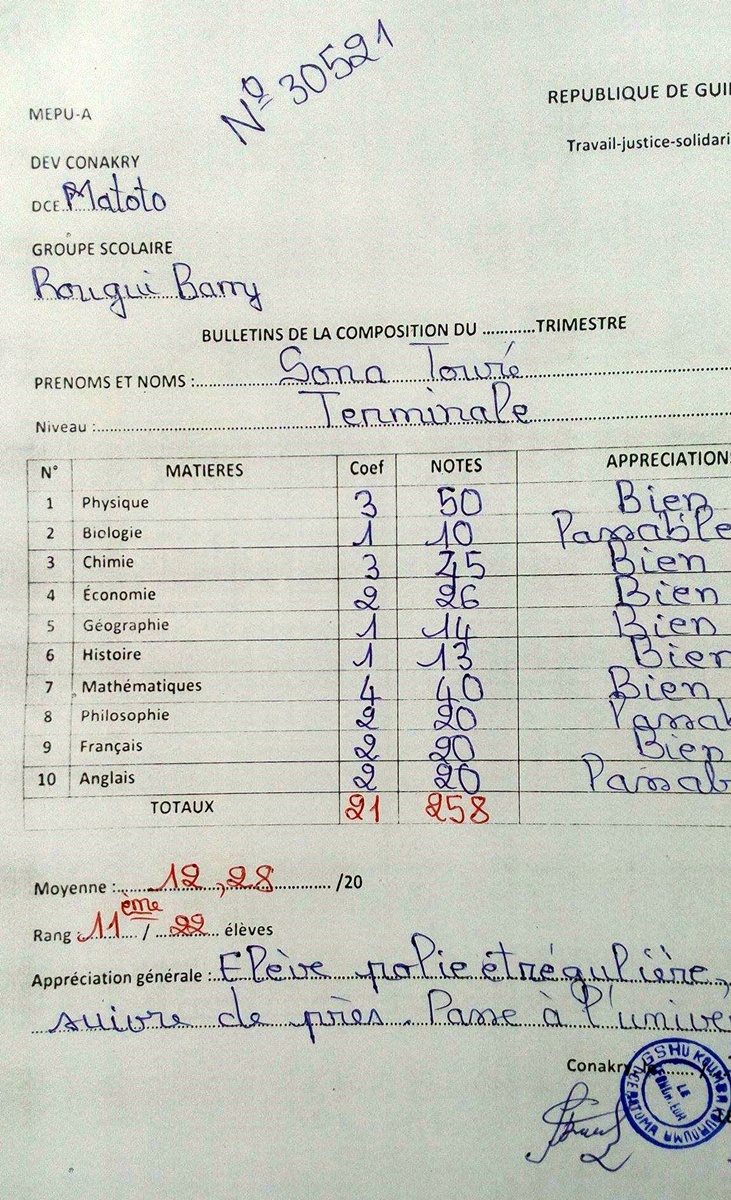 N° 30521
REPUBLIQUE DE GUI
MEPU-A
Travail-justice-solidari
DEV CONAKRY
DCE Matoto
GROUPE SCOLAIRE
Rougui Barry
BULLETINS DE LA COMPOSITION DU ............TRIMESTRE
PRENOMS ET NOMS : Sona Touré
Niveau : Terminale
N° MATIERES Coef NOTES APPRECIATION
1 Physique 3 50 Bien
2 Biologie 1 10 Passable
3 Chimie 3 45 Bien
4 Économie 2 26 Bien
5 Géographie 1 14 Bien
6 Histoire 1 13 Bien
7 Mathématiques 4 40 Bien
8 Philosophie 2 20 Passab
9 Français 2 20 Bien
10 Anglais 2 20 Passab
TOTAUX 21 258
Moyenne : 12,28 /20
Rang : 11ème / 22 élèves
Appréciation générale : Elève polie et régulière,
suivre de près. Passe à l'unive
Conakry